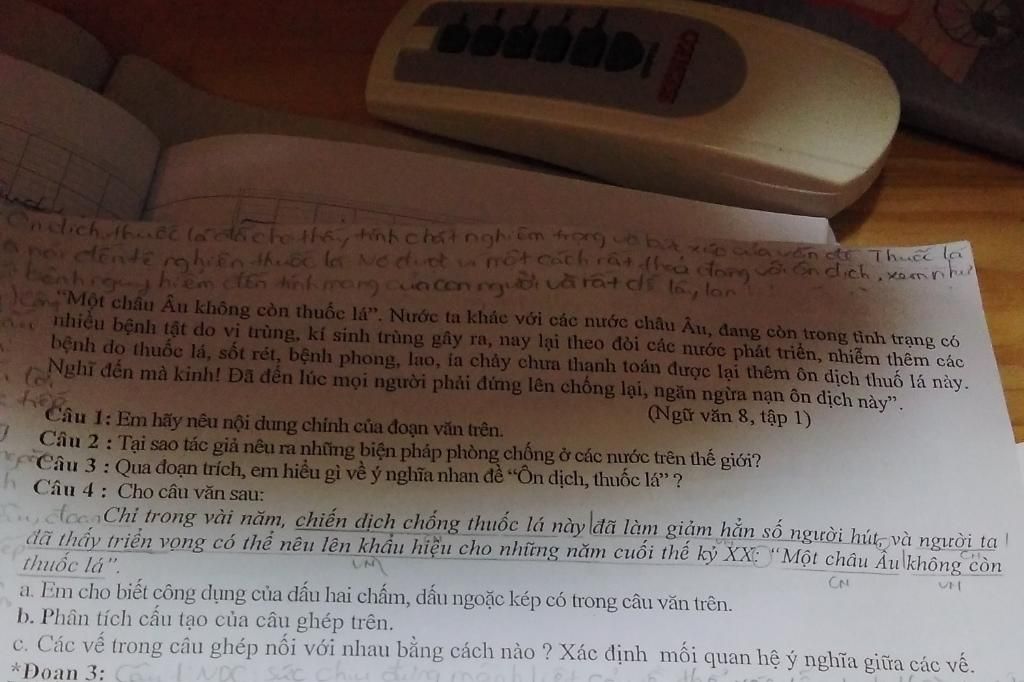 Ôn dịch, thuốc lá đã cho thấy tính chất nghiêm trọng và bức xúc của vấn đề. Thuốc lá
nghiện thuốc lá một cách rất ôn dịch, xem như
bệnh nguy hiểm đến tính mạng của con người và rất dễ lây lan
"Một châu Âu không còn thuốc lá". Nước ta khác với các nước châu Âu, đang còn trong tình trạng có
nhiều bệnh tật do vi trùng, kí sinh trùng gây ra, nay lại theo đòi các nước phát triển, nhiễm thêm các
bệnh do thuốc lá, sốt rét, bệnh phong, lao, ỉa chảy chưa thanh toán được lại thêm ôn dịch thuố lá này.
Nghĩ đến mà kinh! Đã đến lúc mọi người phải đứng lên chống lại, ngăn ngừa nạn ôn dịch này".
(Ngữ văn 8, tập 1)
Câu 1: Em hãy nêu nội dung chính của đoạn văn trên.
Câu 2 : Tại sao tác giả nêu ra những biện pháp phòng chống ở các nước trên thế giới?
Câu 3 : Qua đoạn trích, em hiểu gì về ý nghĩa nhan đề "Ôn dịch, thuốc lá" ?
Câu 4 : Cho câu văn sau:
Chỉ trong vài năm, chiến dịch chống thuốc lá này đã làm giảm hẳn số người hút, và người ta
đã thấy triển vọng có thể nêu lên khẩu hiệu cho những năm cuối thế kỷ XX: "Một châu Âu không còn
thuốc lá".
VN CN VN
a. Em cho biết công dụng của dấu hai chấm, dấu ngoặc kép có trong câu văn trên.
b. Phân tích cấu tạo của câu ghép trên.
c. Các vế trong câu ghép nối với nhau bằng cách nào ? Xác định mối quan hệ ý nghĩa giữa các vế.
*Đoan 3: